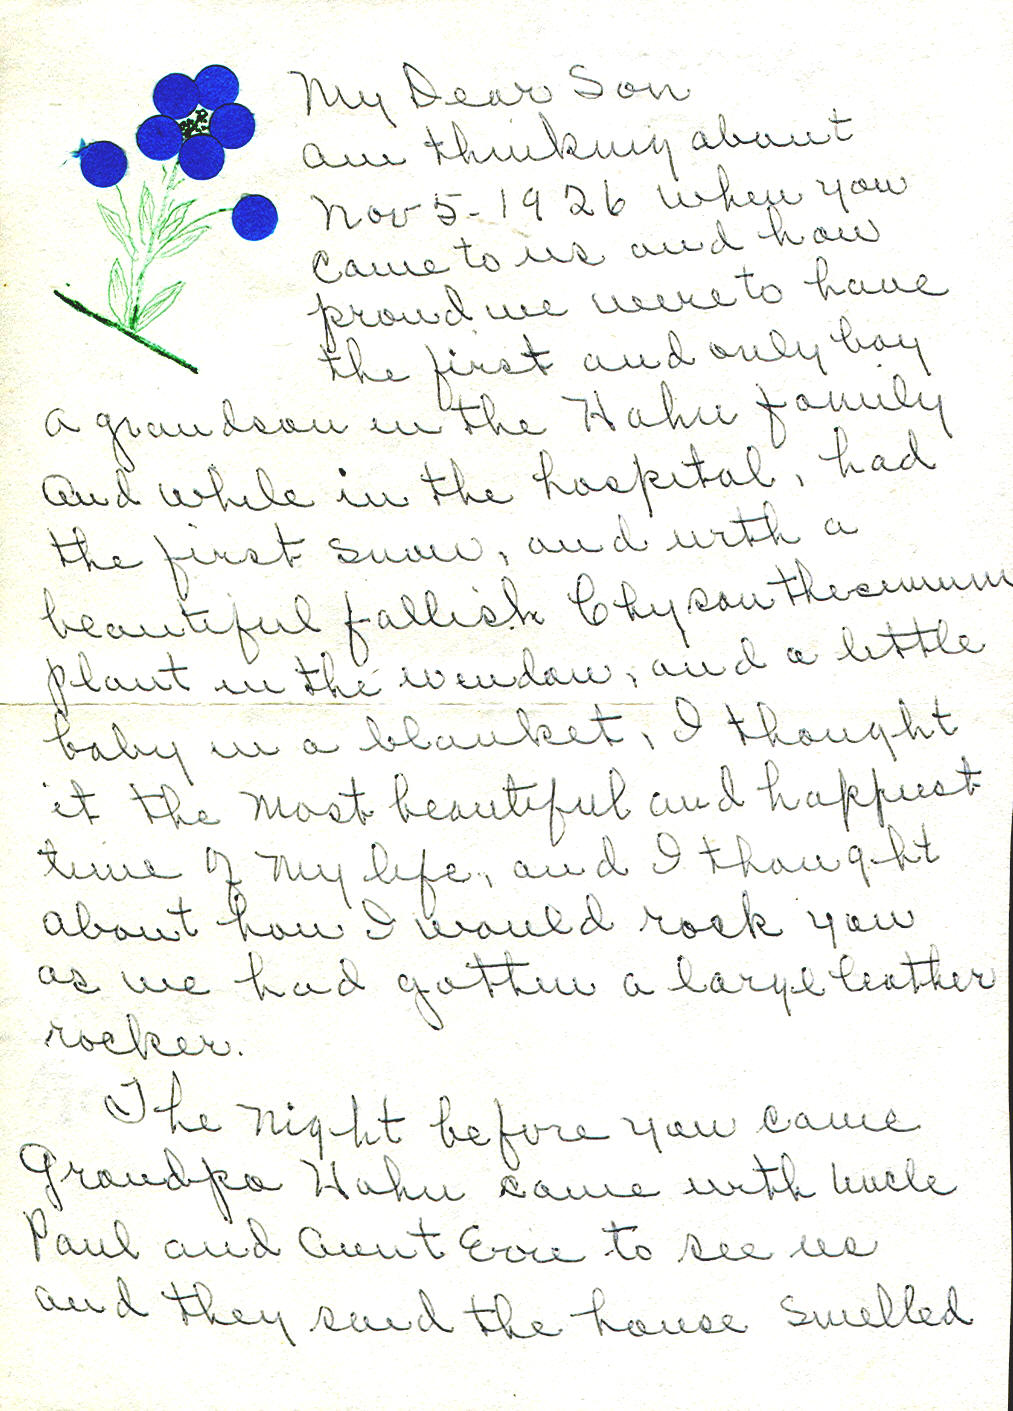 My Dear Son
am thinking about
Nov 5-1926 when you
came to us and how
proud we were to have
the first and only boy
a grandson in the Hahn family
And while in the hospital, had
the first snow, and with a
beautiful fallish Chysanthesemum
plant in the window, and a little
baby in a blanket, I thought
it the most beautiful and happiest
time of my life, and I thought
about how I would rock you
as we had gotten a large leather
rocker.
The night before you came
Grandpa Hahn came with Uncle
Paul and Aunt Evie to see us
and they said the house smelled